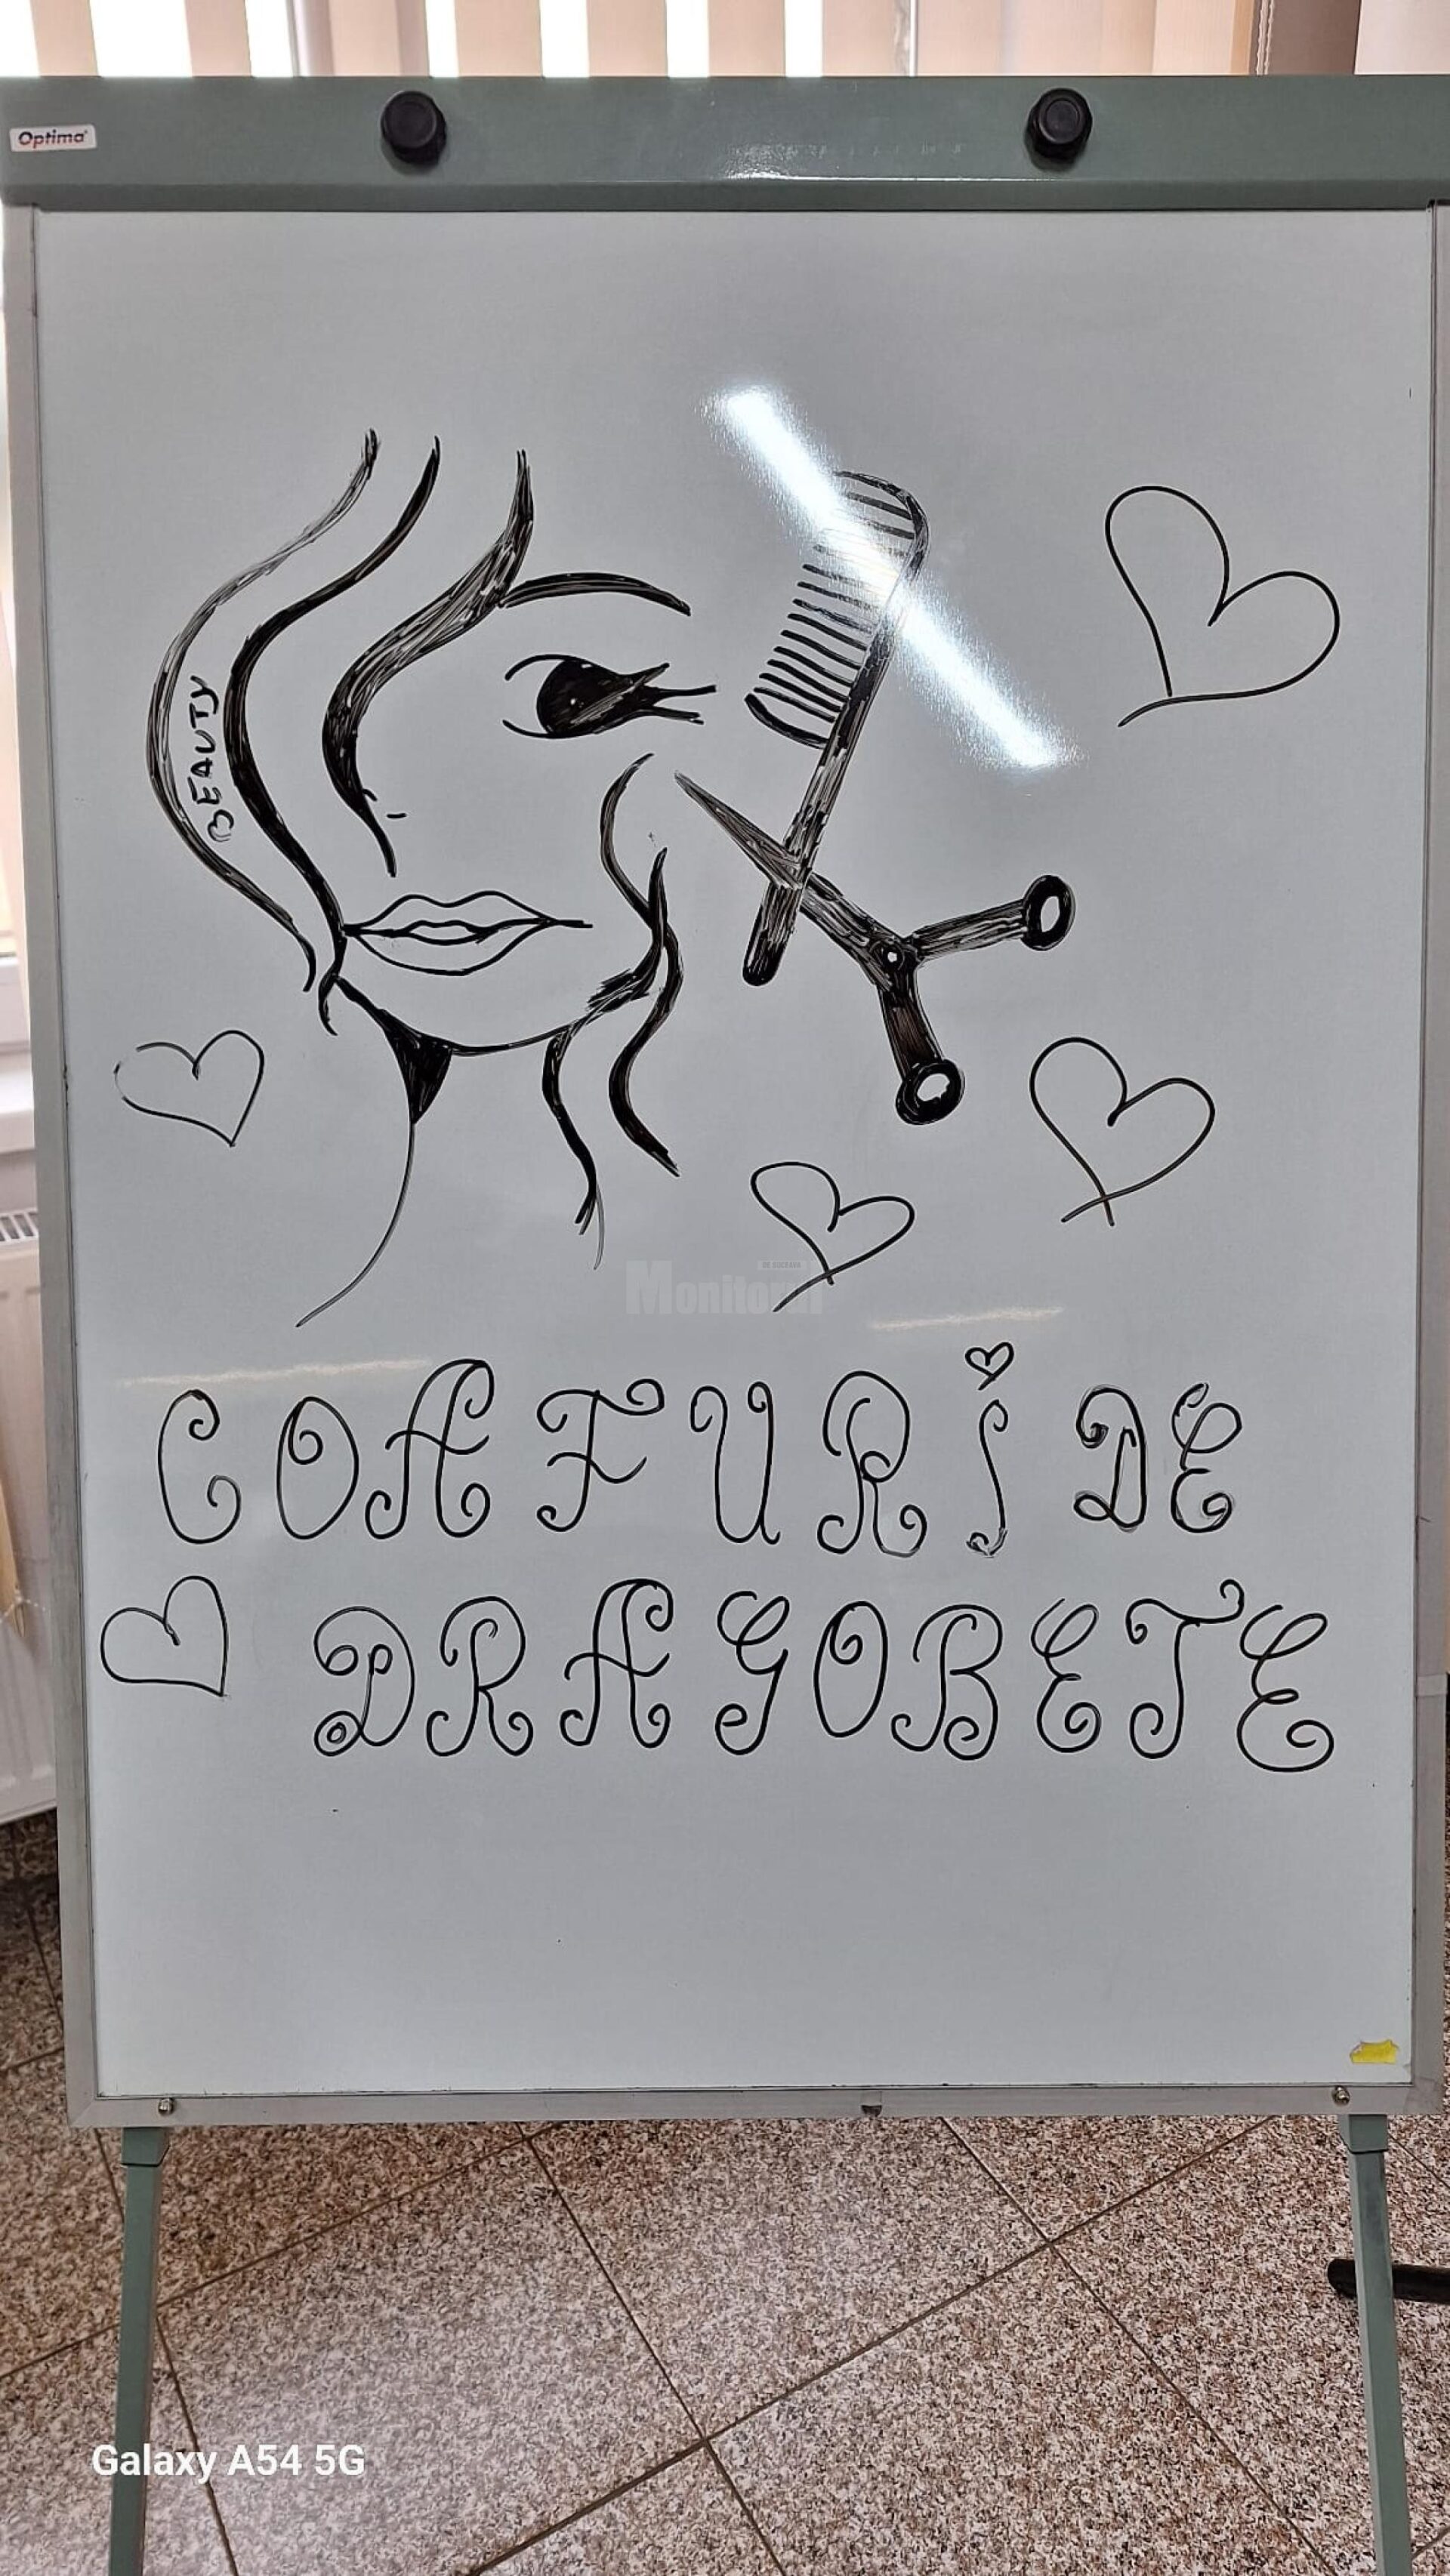 Optima
BEAUTY
DE SUCEAVA
Monitorul
COAFURI DE
DRAGOBETE
Galaxy A54 5G